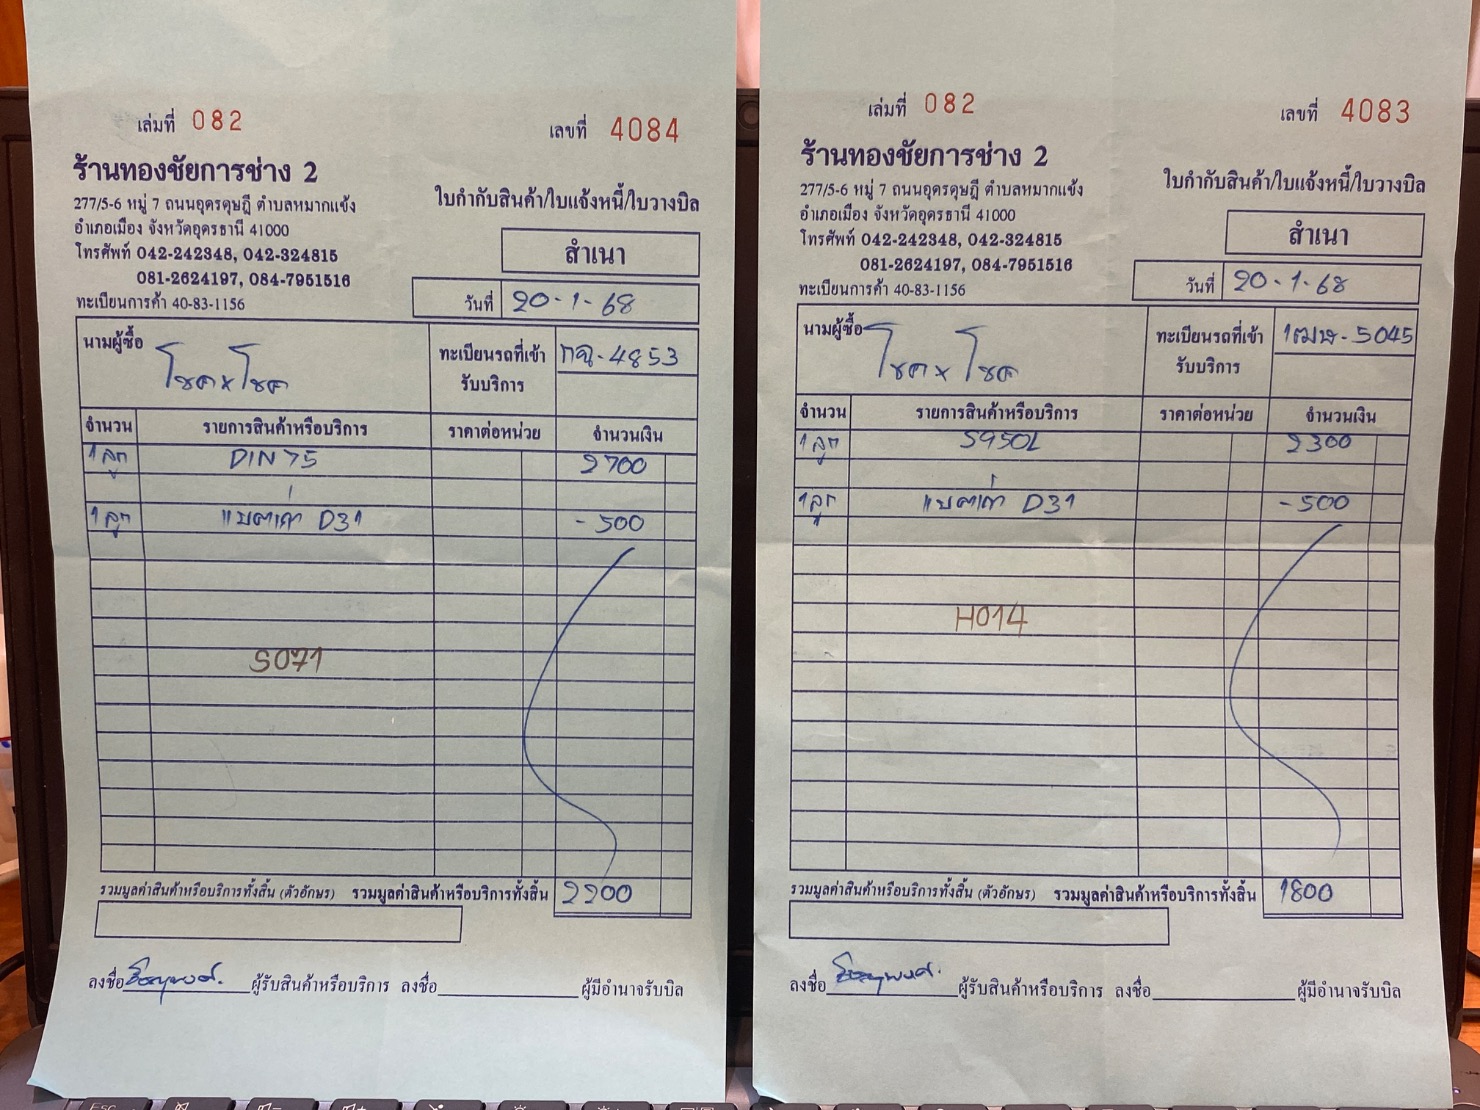 เล่มที่ 082
เลขที่ 4084
ร้านทองชัยการช่าง 2
277/5-6 หมู่ 7 ถนนอุดรดุษฎี ตำบลหมากแข้ง
อำเภอเมือง จังหวัดอุดรธานี 41000
โทรศัพท์ 042-242348, 042-324815
081-2624197, 084-7951516
ทะเบียนการค้า 40-83-1156
ใบกำกับสินค้า/ใบแจ้งหนี้/ใบวางบิล
สำเนา
วันที่ 20-1-68
นามผู้ซื้อ โชค x โชค
ทะเบียนรถที่เข้ารับบริการ กฉ-4853
จำนวน รายการสินค้าหรือบริการ ราคาต่อหน่วย จำนวนเงิน
1 ลูก DIN 75 2700
1 ลูก แบตเก่า D31 -500
S071
รวมมูลค่าสินค้าหรือบริการทั้งสิ้น (ตัวอักษร) รวมมูลค่าสินค้าหรือบริการทั้งสิ้น 2200
ลงชื่อ ผู้รับสินค้าหรือบริการ ลงชื่อ ผู้มีอำนาจรับบิล
เล่มที่ 082
เลขที่ 4083
ร้านทองชัยการช่าง 2
277/5-6 หมู่ 7 ถนนอุดรดุษฎี ตำบลหมากแข้ง
อำเภอเมือง จังหวัดอุดรธานี 41000
โทรศัพท์ 042-242348, 042-324815
081-2624197, 084-7951516
ทะเบียนการค้า 40-83-1156
ใบกำกับสินค้า/ใบแจ้งหนี้/ใบวางบิล
สำเนา
วันที่ 20-1-68
นามผู้ซื้อ โชค x โชค
ทะเบียนรถที่เข้ารับบริการ 5045
จำนวน รายการสินค้าหรือบริการ ราคาต่อหน่วย จำนวนเงิน
1 ลูก S95DL 2300
1 ลูก แบตเก่า D31 -500
H014
รวมมูลค่าสินค้าหรือบริการทั้งสิ้น (ตัวอักษร) รวมมูลค่าสินค้าหรือบริการทั้งสิ้น 1800
ลงชื่อ ผู้รับสินค้าหรือบริการ ลงชื่อ ผู้มีอำนาจรับบิล